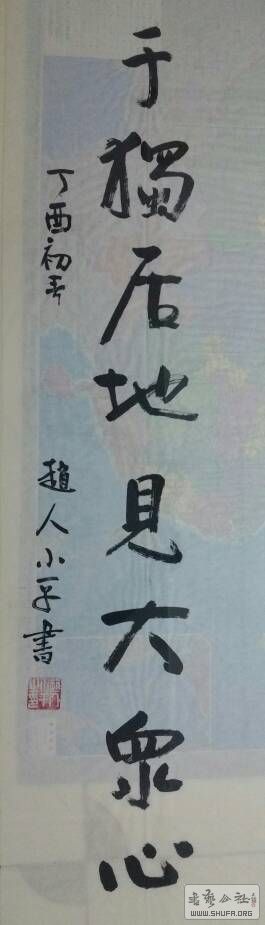 于獨居地見大眾心
丁酉初春
趙人小平書
书艺公社
WWW.SHUFA.ORG